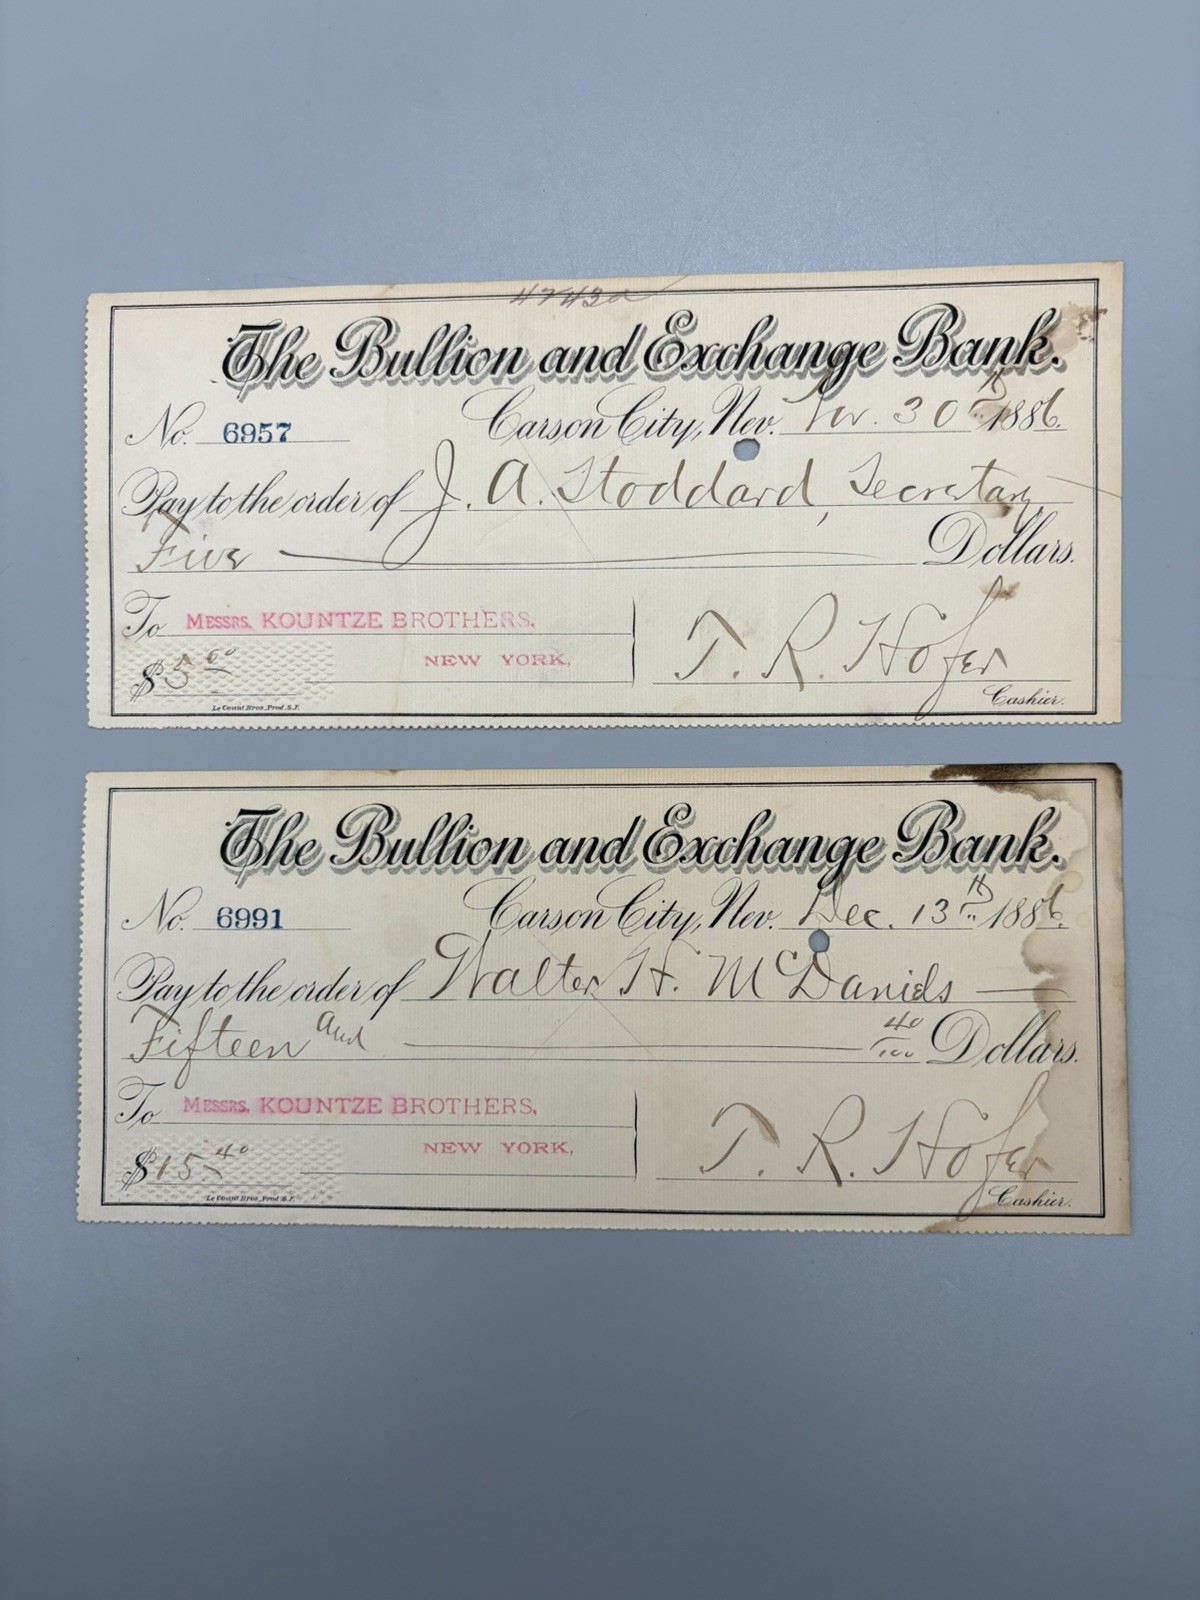 4743a
The Bullion and Exchange Bank.
No. 6957 Carson City, Nev. Nov. 30th 1886.
Pay to the order of J. A. Stoddard, Secretary
Five Dollars.
To Messrs. KOUNTZE BROTHERS,
$5.00 NEW YORK,
T. R. Hofer
Le Count Bros. Prod. S.F.
Cashier.
The Bullion and Exchange Bank.
No. 6991 Carson City, Nev. Dec. 13th 1886.
Pay to the order of Walter H. McDaniels
Fifteen and 40/100 Dollars.
To Messrs. KOUNTZE BROTHERS,
$15.40 NEW YORK,
T. R. Hofer
Le Count Bros. Prod. S.F.
Cashier.